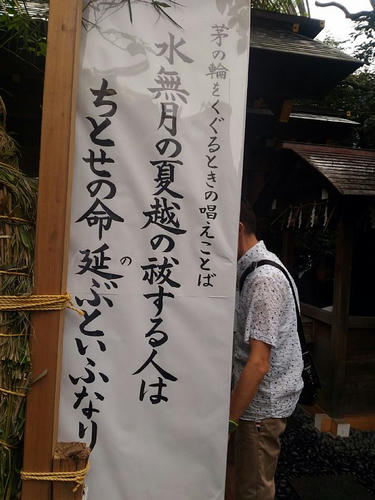 茅の輪をくぐるときの唱えことば
水無月の夏越の祓する人は
ちとせの命延ぶといふなり
の